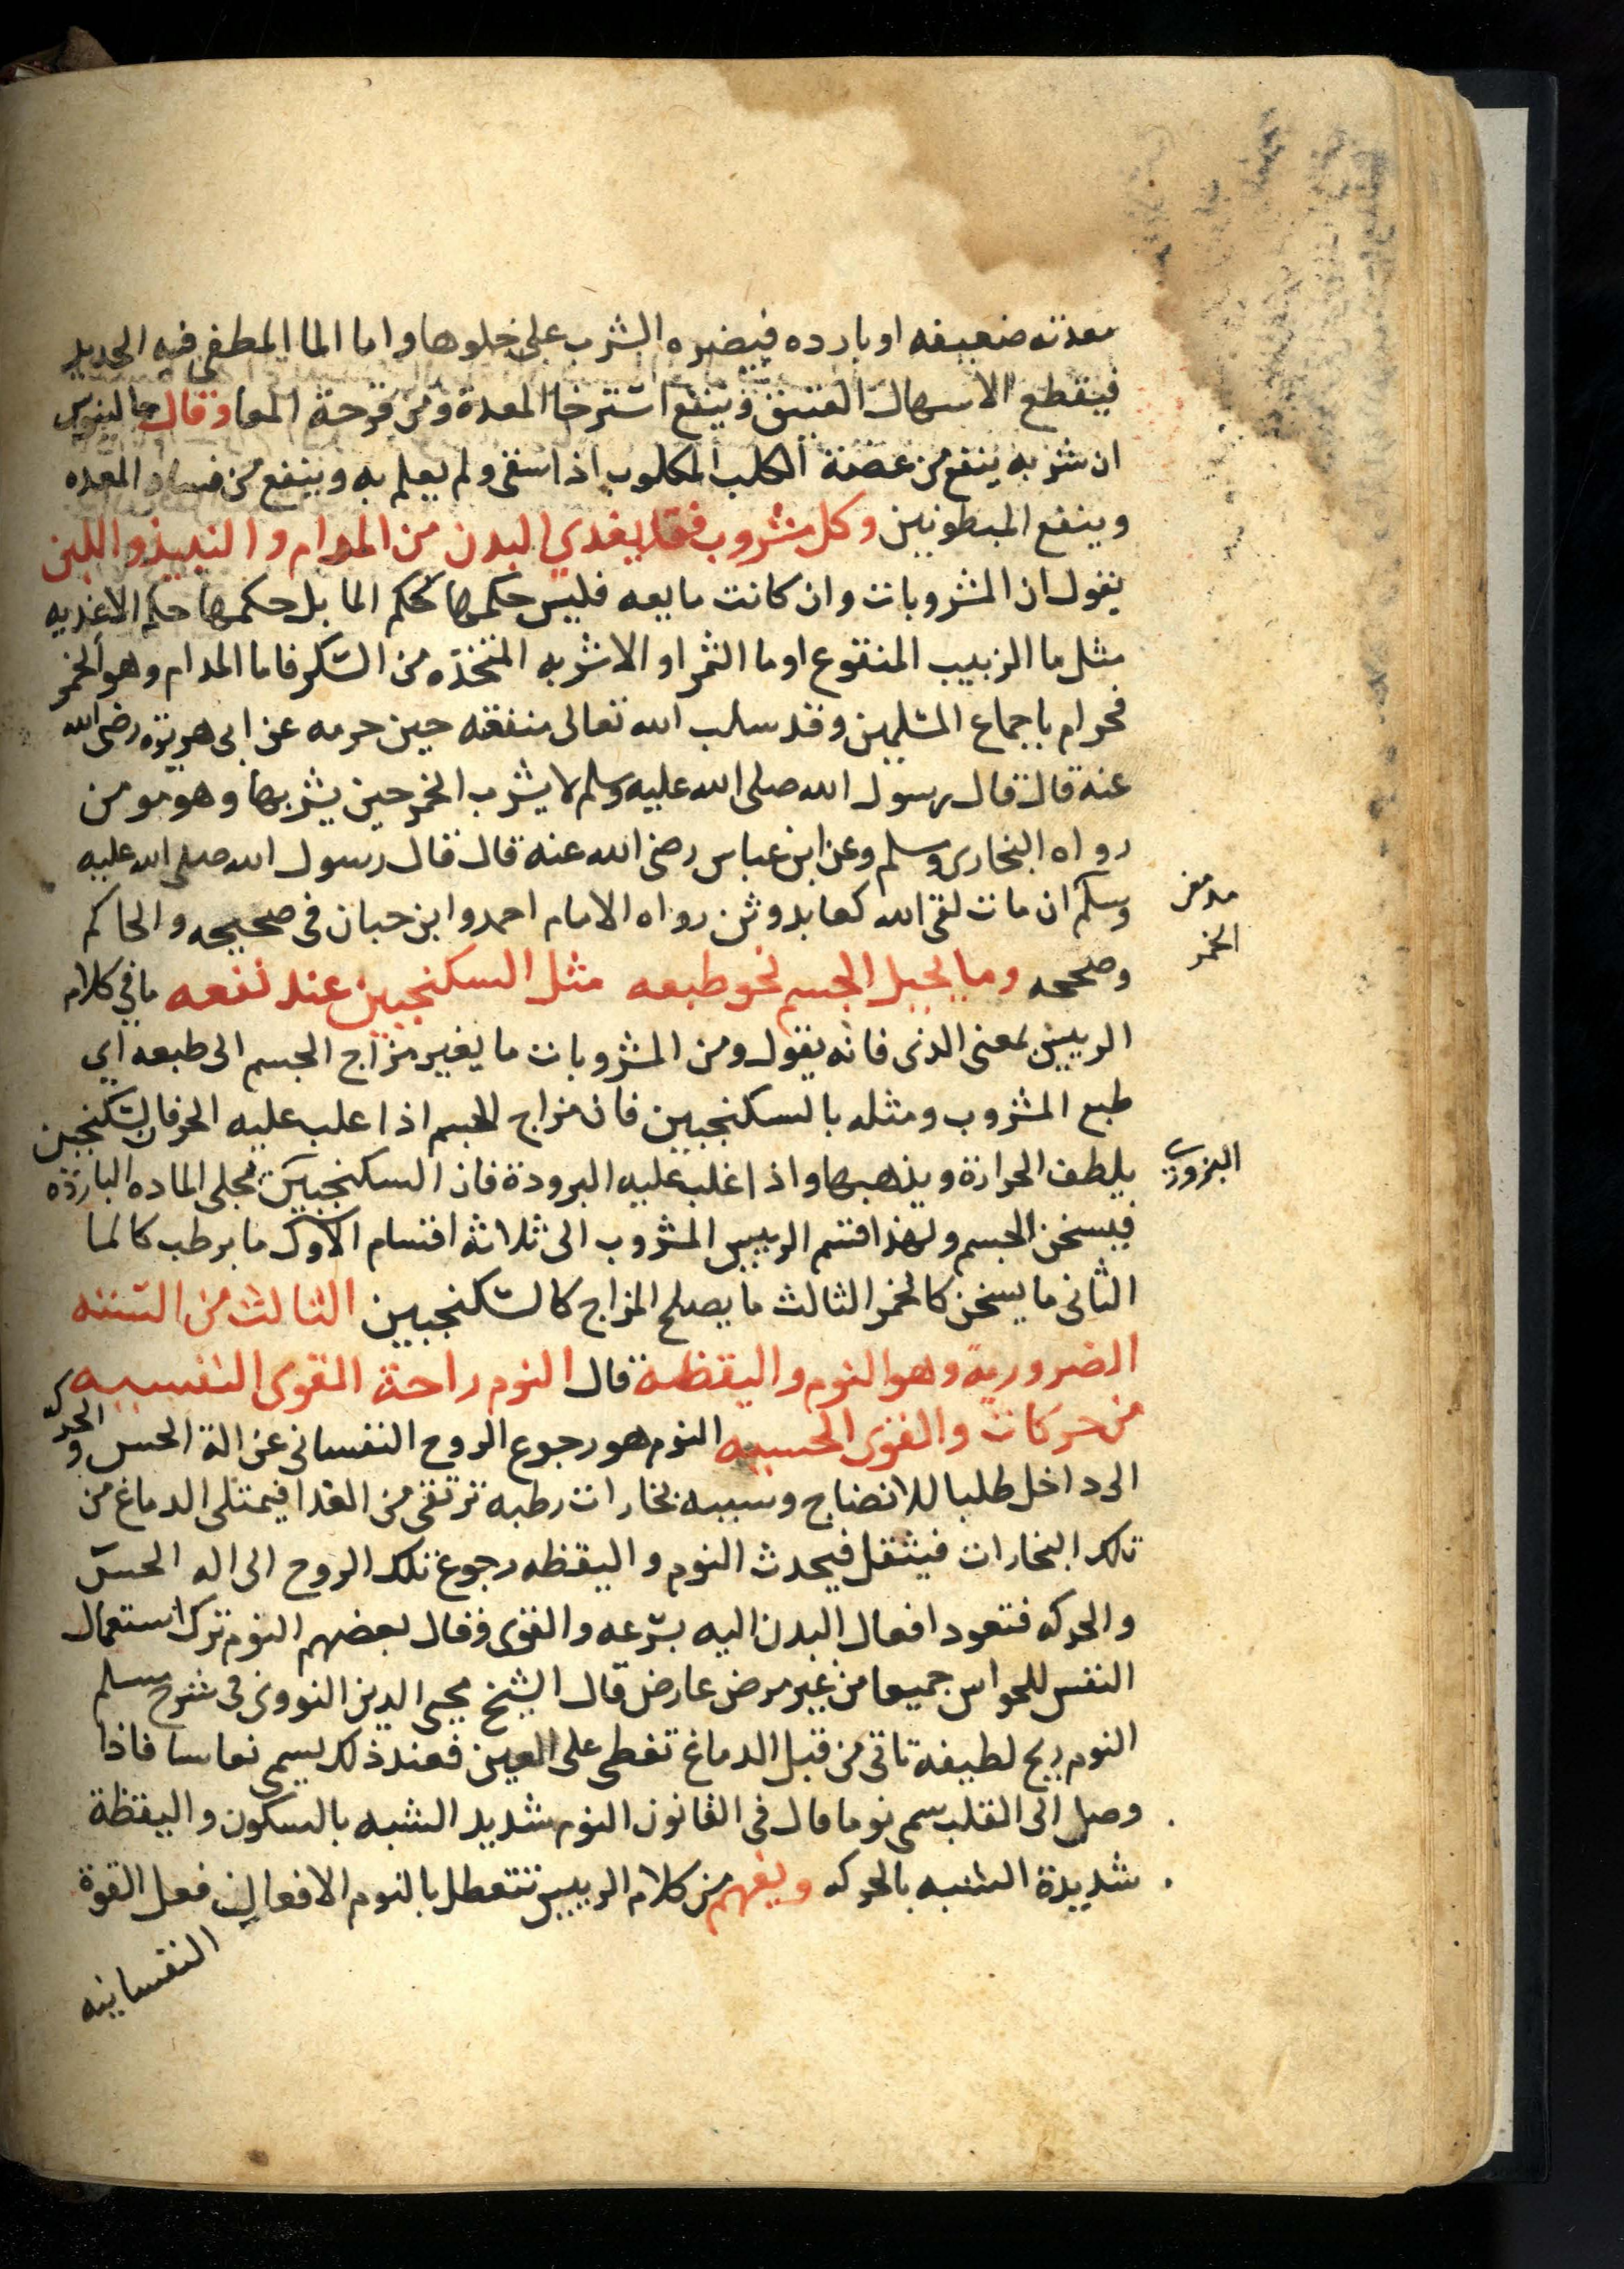 معدته ضعيفه او بارده فيضره الشرب على خلوها واما الما المطفى فيه الحديد
فيقطع الاسهال العتيق وينفع استرخا المعدة ومن قرحة المعا وقال جالينوس
ان شربه ينفع من عضة الكلب المكلوب اذا سقى ولم يعلم به وينفع من فساد المعده
وينفع المبطونين وكل مشروب فقد يغذي البدن من المدام والنبيذ واللبن
يقول ان المشروبات وان كانت مايعه فليس حكمها كحكم الما بل حكمها حكم الاغذيه
مثل ما الزبيب المنقوع او ما الثمر او الاشربه المتخذه من السكر فاما المدام وهو الخمر
فحرام باجماع المسلمين وقد سلب الله تعالى منفعه حين حرمه عن ابى هريرة رضى الله
عنه قال قال رسول الله صلى الله عليه وسلم لا يشرب الخمر حين يشربها وهو مومن
رواه البخارى ومسلم وعن ابن عباس رضى الله عنه قال قال رسول الله صلى الله عليه
وسلم ان مات لقى الله كعابد وثن رواه الامام احمد وابن حبان فى صحيحه والحاكم
مدمن
الخمر
وصححه وما يحيل الجسم نحو طبعه مثل السكنجبين عند نفعه ما في كلام
الرييس بمعنى الذى فانه يقول ومن المشروبات ما يغير مزاج الجسم الى طبعه اي
طبع المشروب ومثله بالسكنجبين فان مزاج الجسم اذا علب عليه الحر فان السكنجبين
يلطف الحرارة ويذهبها واذا غلب عليه البرودة فان السكنجبين يحلى الماده الباردة
البزورى
فيسخن الجسم ولهذا قسم الرييس المشروب الى ثلاثه اقسام الاول ما يرطب كالما
الثانى ما يسخن كالخمر الثالث ما يصلح المزاج كالسكنجبين الثالث من الستة
الضرورية وهو النوم واليقظة قال النوم راحة القوى النفسيه
من حركات والقوى الحسيه النوم هو رجوع الروح النفسانى عن الة الحس والحركه
الى داخل طلبا للانضاج وسببه بخارات رطبه ترتقى من الغدا فيمتلى الدماغ من
تلك البخارات فيثقل فيحدث النوم واليقظه رجوع تلك الروح الى اله الحس
والحركه فتعود افعال البدن اليه بسرعه والقوى وقال بعضهم النوم ترك استعمال
النفس للحواس جميعا من غير مرض عارض قال الشيخ محيى الدين النووى فى شرح مسلم
النوم ريح لطيفة تاتى من قبل الدماغ تغطى على العين فعند ذلك يسمى نعاسا فاذا
وصل الى القلب سمى نوما قال فى القانون النوم شديد الشبه بالسكون واليقظة
شديدة الشبه بالحركه ويفهم من كلام الرييس تتعطل بالنوم الافعال فعل القوة
النفسانيه